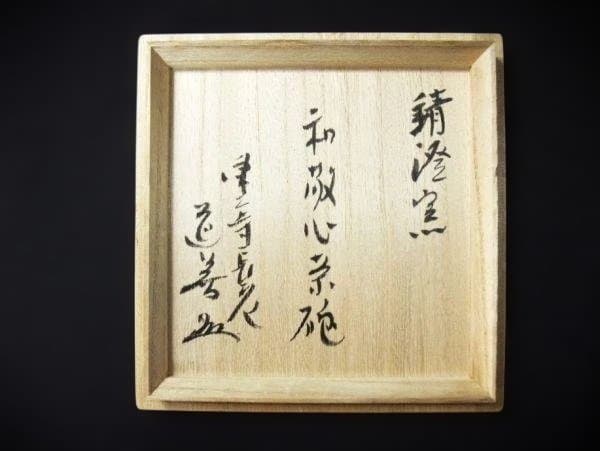 澄窯
和敬心茶碗
寺長老
道善